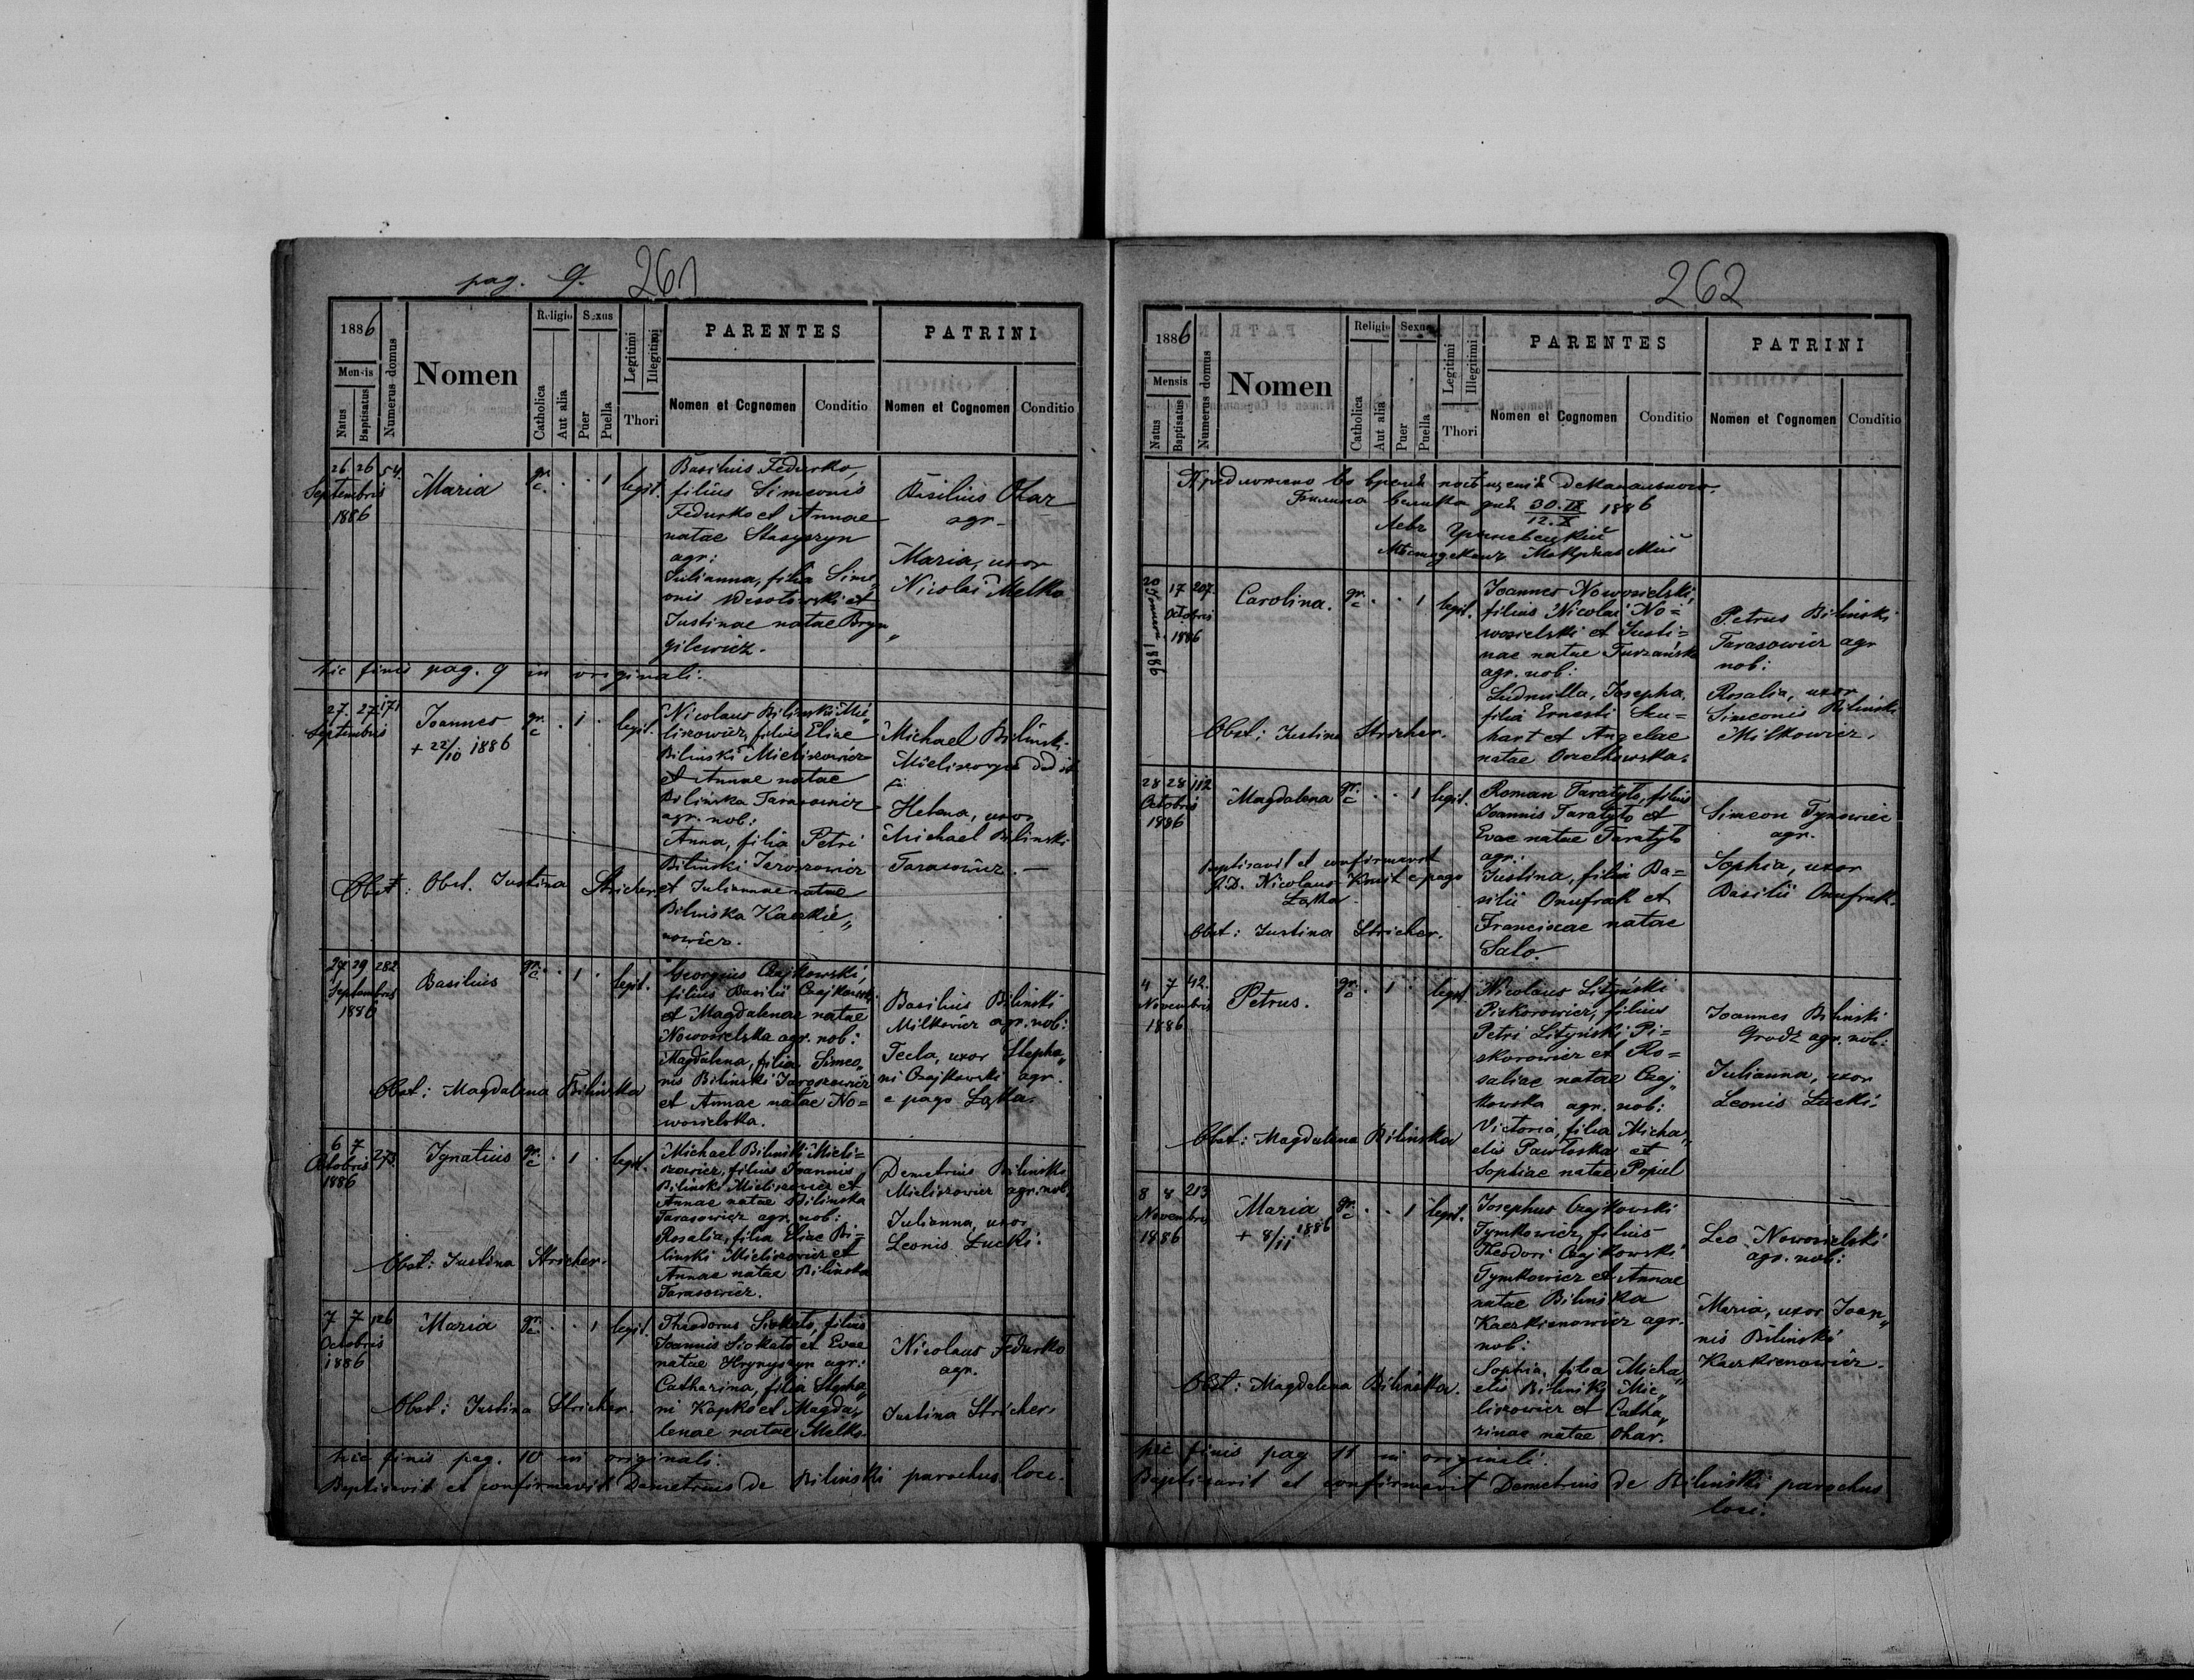 pag. 9. 261
1886
Mensis
Natus
Baptisatus
Numerus domus
Nomen
Religio
Catholica
Aut alia
Sexus
Puer
Puella
Legitimi
Illegitimi
Thori
PARENTES
Nomen et Cognomen
Conditio
PATRINI
Nomen et Cognomen
Conditio
26 26 54.
Septembris
1886
Maria
gr. c. . . 1 legit.
Basilius Fedurko,
filius Simeonis
Fedurko et Annae
natae Stasyszyn
agr:
Julianna, filia Sime„
onis Wesołowski et
Justinae natae Bryn„
gilewicz.
Basilius Ohar
agr.
Maria, uxor
Nicolai Melko
hic finis pag. 9 in originali.
27. 27 171
Septembris
Joannes
+ 22/10 1886
gr. c . 1 . legit.
Nicolaus Biliński Mie„
liszowicz, filius Eliae
Biliński Mieliszowicz
et Annae natae
Bilińska Tarasowicz
agr. nob:
Anna, filia Petri
Biliński Jaroszowicz
et Juliannae natae
Bilińska Kaczkie„
nowicz.
Michael Biliński
Helena, uxor
Michael Biliński
Tarasowicz. —
Obst: Obst. Justina Stricher
27 29 282
Septembris
1886
Basilius
gr. c. . 1 . legit.
Georgius Czajkowski,
filius Basilii Czajkowski
et Magdalenae natae
Nowosielska agr. nob:
Magdalena, filia Simeo„
nis Biliński Jaroszowicz
et Annae natae No=
wosielska.
Basilius Biliński
Milkowicz agr. nob:
Tecla, uxor Stepha„
ni Czajkowski agr.
e pago Łąka.
Obst: Magdalena Bilińska
6 7 273.
Octobris
1886
Ignatius
gr. c . 1 . legit.
Michael Biliński Mieli=
szowicz, filius Joannis
Biliński Mieliszowicz et
Annae natae Bilińska
Tarasowicz agr. nob:
Rosalia, filia Eliae Bi=
liński Mieliszowicz et
Annae natae Bilińska
Tarasowicz.
Demetrius Biliński
Mieliszowicz agr. nob.
Julianna, uxor
Leonis Łucki.
Obst: Justina Stricher.
7 7 126
Octobris
1886
Maria
gr. c. . . 1 legit.
Theodorus Siokało, filius
Joannis Siokało et Evae
natae Hrynyszyn agr:
Catharina, filia Stepha„
ni Kopko et Magda„
lenae natae Melko.
Nicolaus Fedurko
agr.
Justina Stricher.
Obst: Justina Stricher.
hic finis pag. 10 in originali.
Baptisavit et confirmavit Demetrius de Biliński parochus loci.
262
1886
Mensis
Natus
Baptisatus
Numerus domus
Nomen
Religio
Catholica
Aut alia
Sexus
Puer
Puella
Legitimi
Illegitimi
Thori
PARENTES
Nomen et Cognomen
Conditio
PATRINI
Nomen et Cognomen
Conditio
Предложено во время деканального.
Билина Велика дня 30.IX/12.X 1886
Левъ
20 17 207.
Octobris
1886
1886
Carolina.
gr. c . . 1 legit.
Joannes Nowosielski,
filius Nicolai No=
wosielski et Justi=
nae natae Turzańska
agr. nob:
Ludmilla, Josepha,
filia Ernesti Szu=
hart et Angelae
natae Orzechowska.
Petrus Biliński
Tarasowicz agr
nob:
Rosalia, uxor
Simeonis Biliński
Milkowicz.
Obst: Justina Stricher.
28 28 112
Octobris
1886
Magdalena
gr. c . . 1 legit.
Roman Taratyło, filius
Joannis Taratyło et
Evae natae Taratyło
agr:
Justina, filia Ba=
silii Onufrak et
Franciscae natae
Salo.
Simeon Tynowiec
agr.
Sophia, uxor
Basilii Onufrak.
Baptisavit et confirmavit
A.D. Nicolaus Kmit e pago
Łąka
Obst: Justina Stricher.
4 7 42.
Novembris
1886
Petrus.
gr. c . 1 . legit.
Nicolaus Lityński
Piskorowicz, filius
Petri Lityński Pi=
skorowicz et Ro=
saliae natae Czaj„
kowska agr. nob:
Victoria, filia Micha„
elis Pawłoska et
Sophiae natae Popiel
Joannes Biliński
Grodz agr. nob:
Julianna, uxor
Leonis Łucki.
Obst: Magdalena Bilińska
8 8 213
Novembris
1886
Maria
+ 8/11 1886
gr. c . . 1 legit.
Josephus Czajkowski
Tymkowicz, filius
Theodori Czajkowski
Tymkowicz et Annae
natae Bilińska
Kaczkienowicz agr.
nob:
Sophia, filia Micha„
elis Biliński Mie„
liszowicz et Catha„
rinae natae Ohar.
Leo Nowosielski
agr. nob:
Maria, uxor Joan„
nis Biliński
Kaczkienowicz.
Obst: Magdalena Bilińska.
hic finis pag 11 in originali.
Baptisavit et confirmavit Demetrius de Biliński parochus
loci.